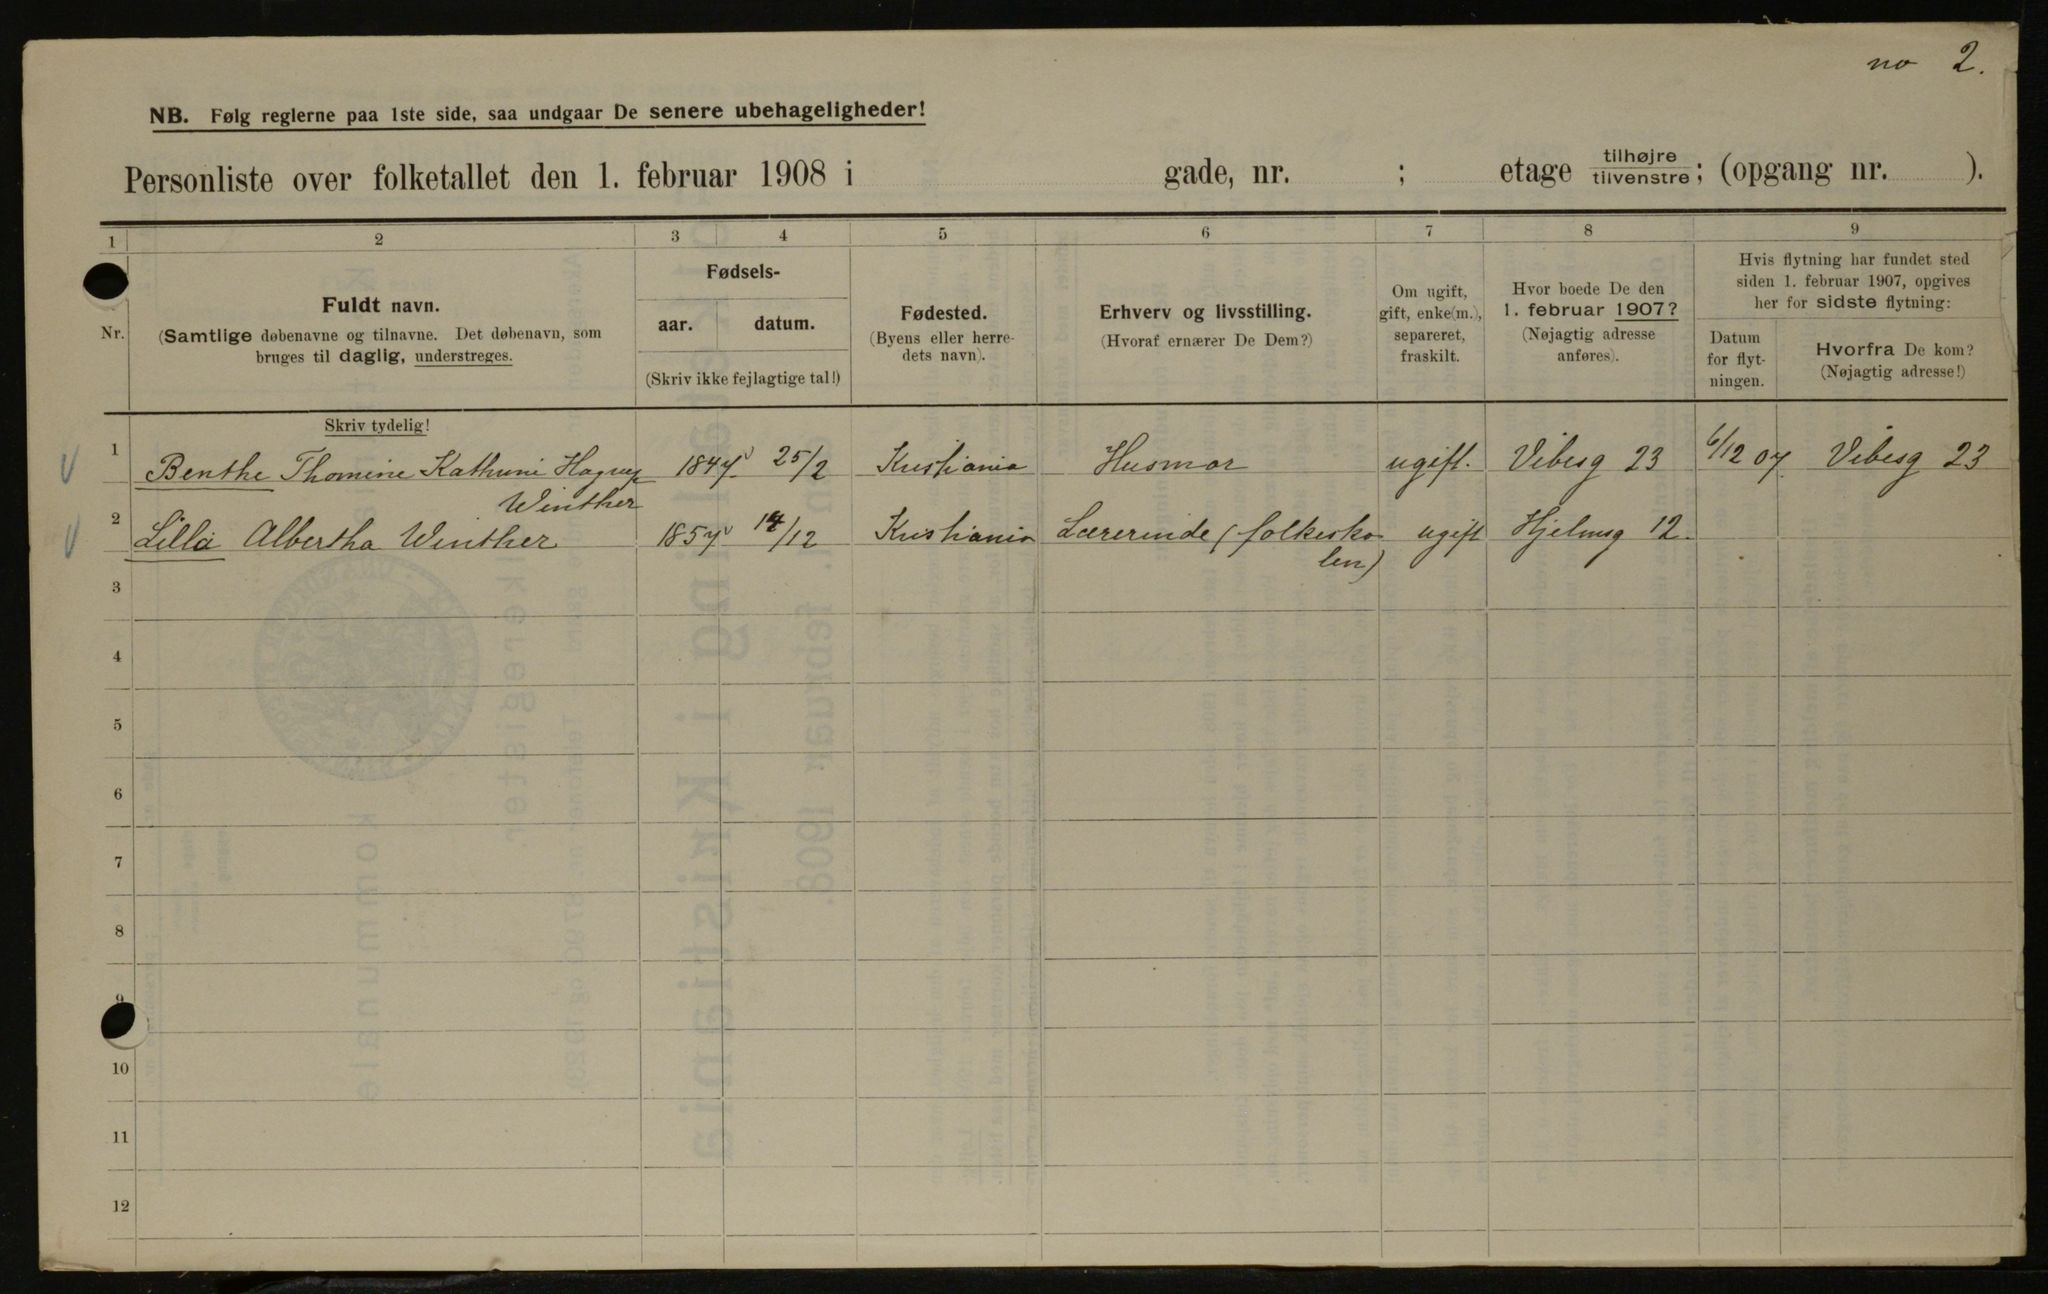 no 2.
NB. Følg reglerne paa 1ste side, saa undgaar De senere ubehageligheder!
Personliste over folketallet den 1. februar 1908 i gade, nr. ; etage tilhøjre tilvenstre; (opgang nr. ).
1 2 3 4 5 6 7 8 9
Nr.
Fuldt navn.
(Samtlige døbenavne og tilnavne. Det døbenavn, som
bruges til daglig, understreges.
Fødsels-
aar. datum.
(Skriv ikke fejlagtige tal!)
Fødested.
(Byens eller herre-
dets navn).
Erhverv og livsstilling.
(Hvoraf ernærer De Dem?)
Om ugift,
gift, enke(m.),
separeret,
fraskilt.
Hvor boede De den
1. februar 1907?
(Nøjagtig adresse
anføres).
Hvis flytning har fundet sted
siden 1. februar 1907, opgives
her for sidste flytning:
Datum
for flyt-
ningen.
Hvorfra De kom?
(Nøjagtig adresse!)
Skriv tydelig!
1 Benthe Thomine Kathrine 1847 25/2 Kristiania Husmor ugift. Vibesg 23 6/12 07. Vibesg 23
Winther
2 Lilla Albertha Winther 1857 14/12 Kristiania Lærerinde (folkesko ugift Hjelmsg 12.
len)
3
4
5
6
7
8
9
10
11
12